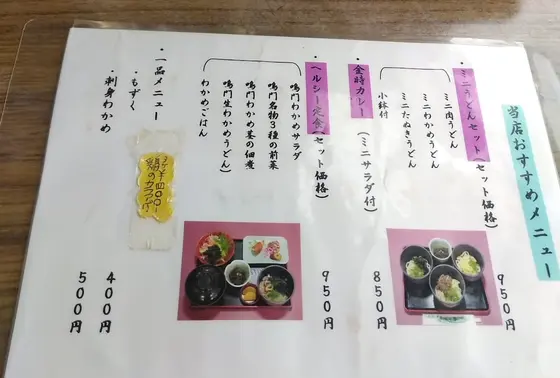 当店おすすめメニュー
・ミニうどんセット(セット価格)
ミニ肉うどん
ミニわかめうどん
ミニたぬきうどん
小鉢付
950円
・金時カレー(ミニサラダ付)
850円
・ヘルシー定食(セット価格)
鳴門わかめサラダ
鳴門名物3種の前菜
鳴門わかめ茎の佃煮
鳴門生わかめうどん)
わかめごはん
950円
・一品メニュー
・もずく
400円
・刺身わかめ
500円